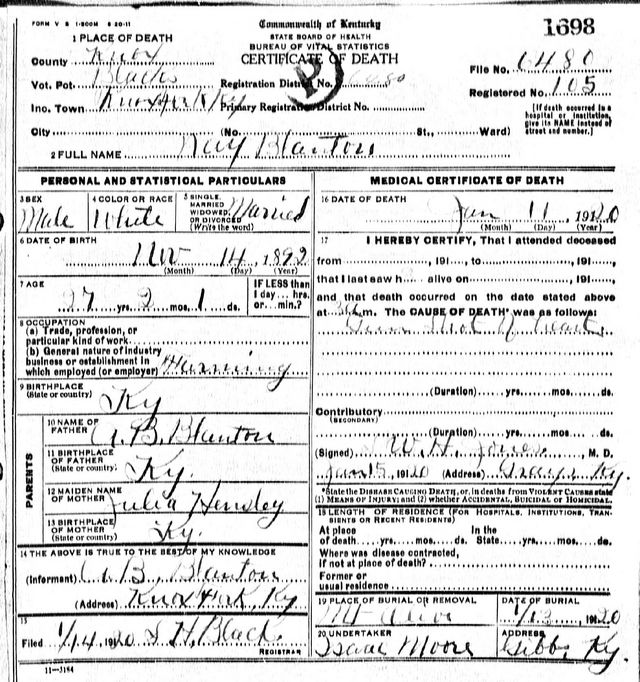 FORM V S 1-200M 6 20-11
Commonwealth of Kentucky
1698
STATE BOARD OF HEALTH
BUREAU OF VITAL STATISTICS
CERTIFICATE OF DEATH
1 PLACE OF DEATH
County Knox
File No. 6480
Vot. Pct. Black
Registration District No.
Registered No. 105
Inc. Town Knox Fork Ky
Primary Registration District No.
[If death occurred in a hospital or institution, give its NAME instead of street and number.]
City (No. St., Ward)
2 FULL NAME Ray Blanton
PERSONAL AND STATISTICAL PARTICULARS
3 SEX Male
4 COLOR OR RACE White
5 SINGLE, MARRIED WIDOWED, OR DIVORCED (Write the word) Married
6 DATE OF BIRTH Nov 14, 1892
(Month) (Day) (Year)
7 AGE 27 yrs. 2 mos. 1 ds.
IF LESS than 1 day... hrs. or... min.?
8 OCCUPATION
(a) Trade, profession, or particular kind of work
(b) General nature of industry business or establishment in which employed (or employer) Farming
9 BIRTHPLACE (State or country) Ky
PARENTS
10 NAME OF FATHER A. B. Blanton
11 BIRTHPLACE OF FATHER (State or country) Ky.
12 MAIDEN NAME OF MOTHER Julia Hensley
13 BIRTHPLACE OF MOTHER (State or country) Ky.
14 THE ABOVE IS TRUE TO THE BEST OF MY KNOWLEDGE
(Informant) A. B. Blanton
(Address) Knox Fork, Ky
15
Filed 1/14, 1920 S. H. Black
REGISTRAR
11-3184
MEDICAL CERTIFICATE OF DEATH
16 DATE OF DEATH Jan 11, 1920
(Month) (Day) (Year)
17 I HEREBY CERTIFY, That I attended deceased
from , 191 , to , 191 ,
that I last saw h alive on , 191 ,
and that death occurred on the date stated above
at m. The CAUSE OF DEATH* was as follows:
Gun Shot of heart
(Duration) yrs. mos. ds.
Contributory
(SECONDARY)
(Duration) yrs. mos. ds.
(Signed) W. H. Jones, M. D.
Jan 15, 1920 (Address) Grays, Ky.
*State the DISEASE CAUSING DEATH, or, in deaths from VIOLENT CAUSES state (1) MEANS OF INJURY; and (2) whether ACCIDENTAL, SUICIDAL or HOMICIDAL.
18 LENGTH OF RESIDENCE (FOR HOSPITALS, INSTITUTIONS, TRANSIENTS OR RECENT RESIDENTS)
At place of death yrs. mos. ds. In the State yrs. mos. ds.
Where was disease contracted, if not at place of death?
Former or usual residence
19 PLACE OF BURIAL OR REMOVAL
DATE OF BURIAL 1/13, 1920
20 UNDERTAKER Isaac Moore
ADDRESS Gibbs Ky.